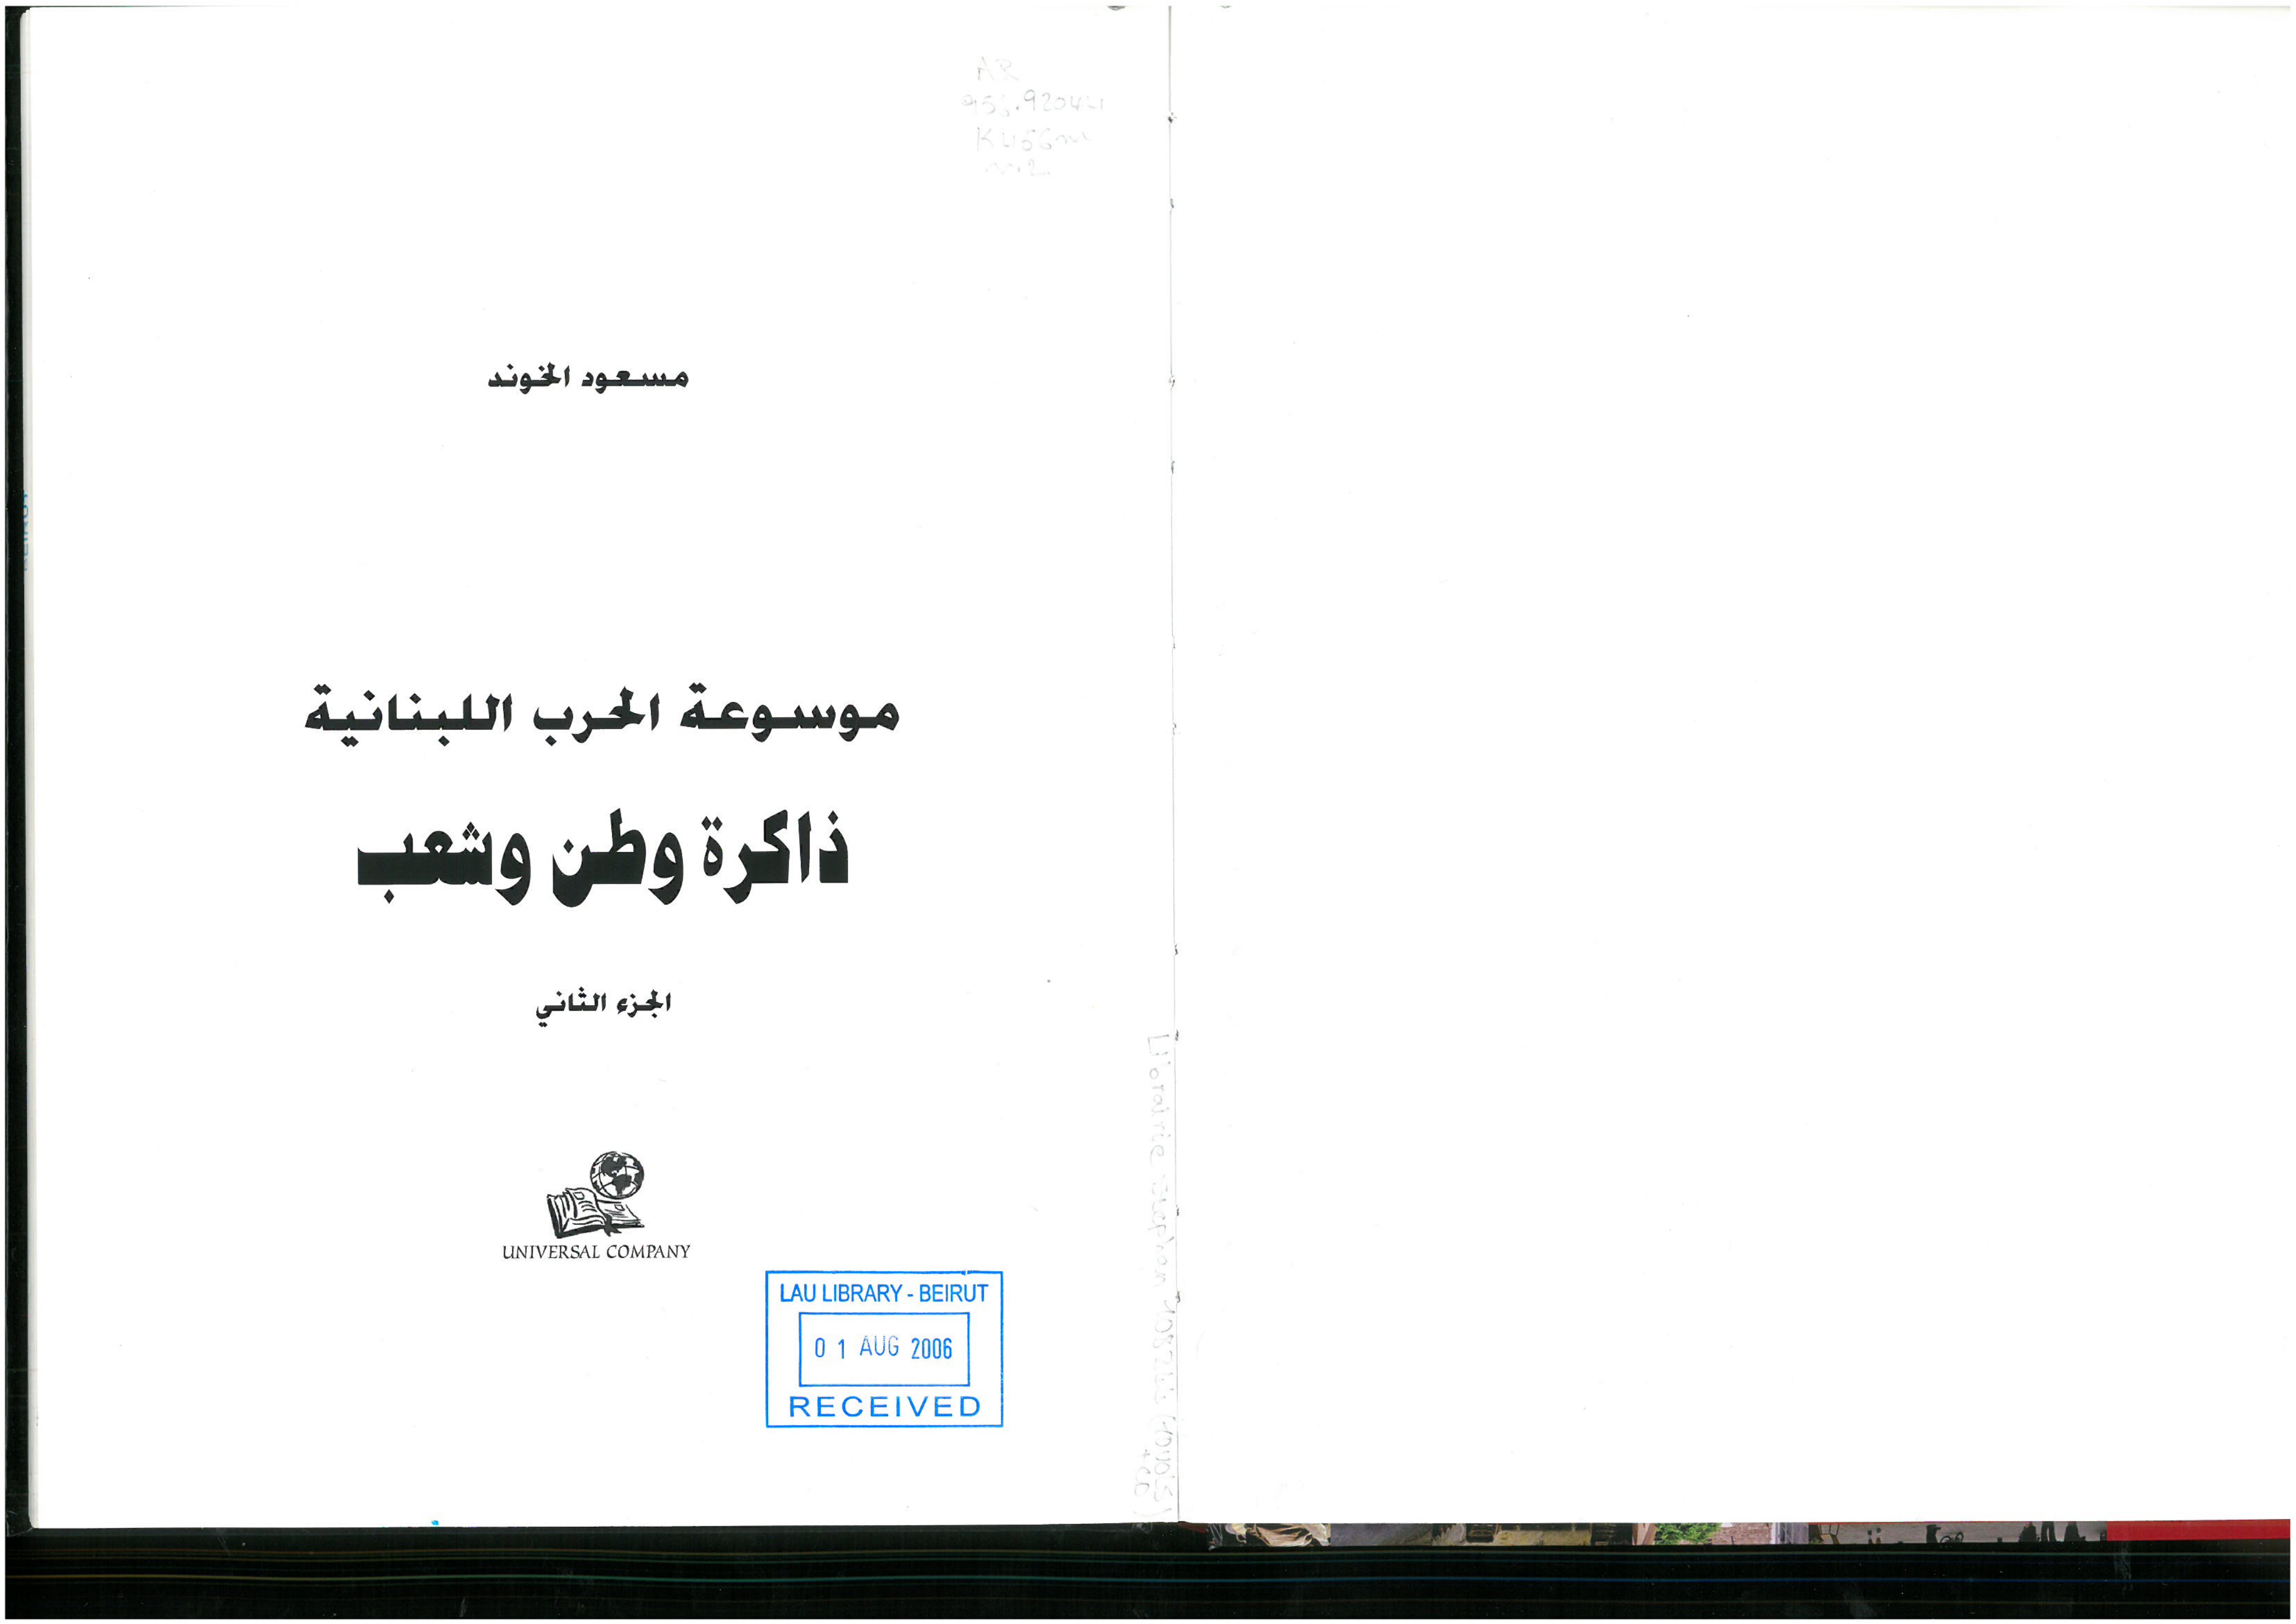 AR
956.92044
K456m
مسعود الخوند
موسوعة الحرب اللبنانية
ذاكرة وطن وشعب
الجزء الثاني
UNIVERSAL COMPANY
LAU LIBRARY - BEIRUT
01 AUG 2006
RECEIVED